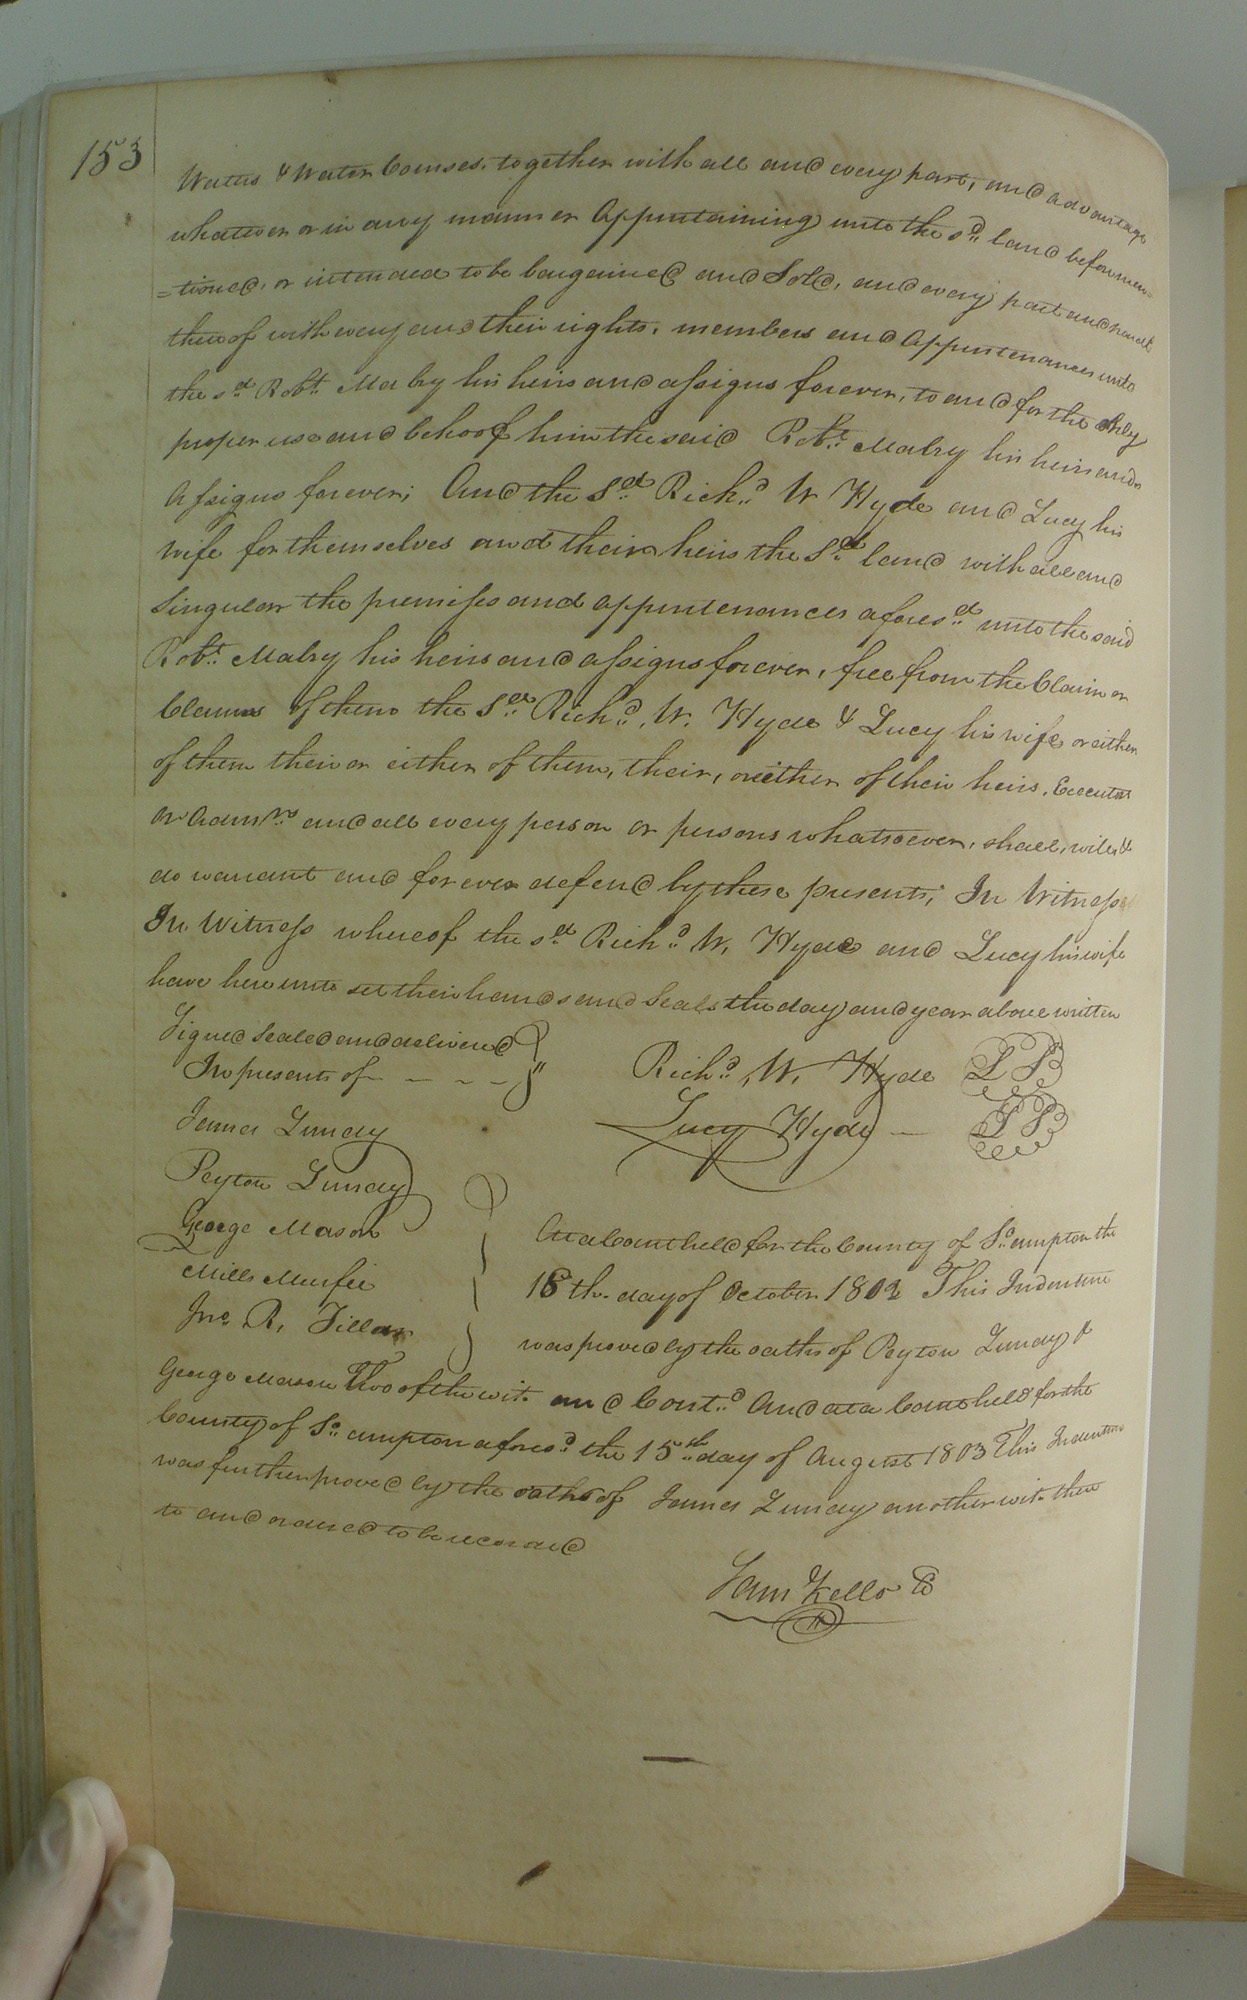 153
Waters & Water Courses, together with all and every part, and advantage
whatever or in any manner Appurtaining unto the sd. land beforemen-
=tioned, or intended to be bargained and Sold, and every part and parcel
thereof with every and their rights, members and Appurtenances unto
the sd. Robt. Mabry his heirs and assigns forever, to and for the only
proper use and behoof him the said Robt. Mabry his heirs and
Assigns forever; And the Sd. Richd. W Hyde and Lucy his
wife for themselves and their heirs the Sd. land with all and
Singular the premises and appurtenances aforesd. unto the said
Robt. Mabry his heirs and assigns forever, free from the Claim or
Claims of them the Sd. Richd. W. Hyde & Lucy his wife or either
of them their or either of them, their, or either of their heirs, Executors
or Admrs. and all every person or persons whatsoever, shall, will &
do warrant and forever defend by these presents; In Witness
In Witness whereof the sd. Richd. W. Hyde and Lucy his wife
have hereunto set their hands and Seals the day and year above written
Signed Sealed and delivered
In presents of - - - -
Richd. W. Hyde LS
James Lundy
Lucy Hyde LS
Peyton Lundy
George Mason
Mills Murfie
Jno. R. Tillar
At a Court held for the County of So.ampton the
18th. day of October 1802 This Indenture
was proved by the oaths of Peyton Lundy &
George Mason Two of the wit. and Contd. And at a Court held for the
County of So.ampton aforesd. the 15th. day of August 1803 This Indenture
was further proved by the oaths of James Lundy another wit. there
to and ordered to be recorded
Sam Kello C